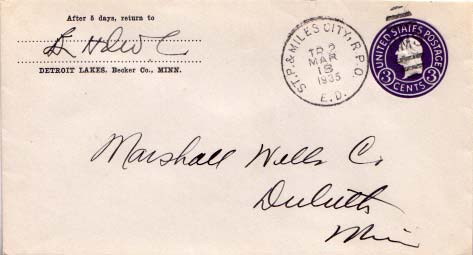 After 5 days, return to
DETROIT LAKES, Becker Co., MINN.
ST. P. & MILES CITY, R.P.O.
TR 2
MAR
15
1935
E.D.
UNITED STATES POSTAGE
3 3
CENTS
Marshall Wells Co
Duluth
Minn